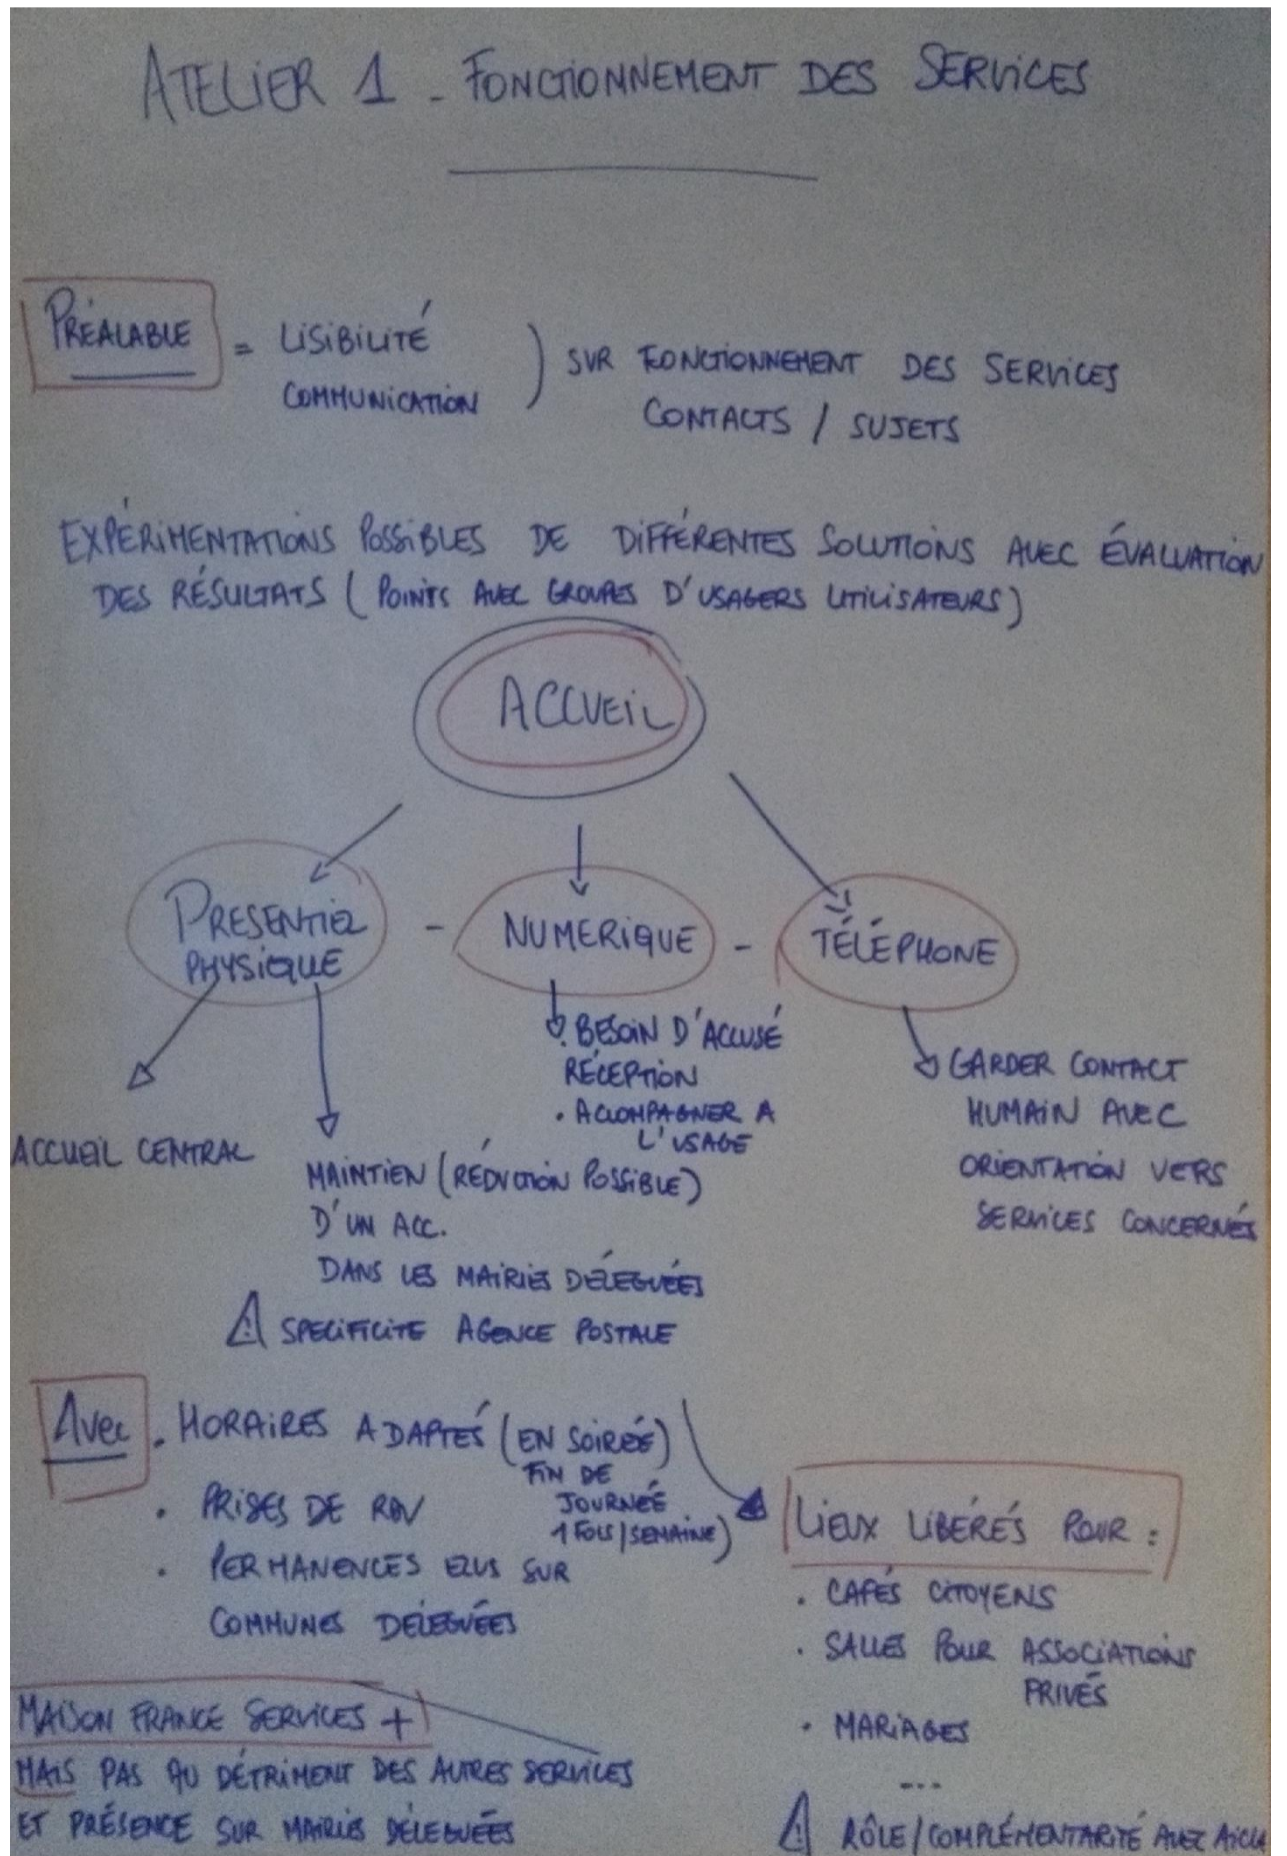 ATELIER 1 - FONCTIONNEMENT DES SERVICES
PRÉALABLE = LISIBILITÉ
COMMUNICATION ) SUR FONCTIONNEMENT DES SERVICES
CONTACTS / SUJETS
EXPÉRIMENTATIONS POSSIBLES DE DIFFÉRENTES SOLUTIONS AVEC ÉVALUATION
DES RÉSULTATS ( POINTS AVEC GROUPES D'USAGERS UTILISATEURS )
ACCUEIL
PRESENTIEL
PHYSIQUE
- NUMERIQUE -
TÉLÉPHONE
ACCUEIL CENTRAL
MAINTIEN ( RÉDUCTION POSSIBLE )
D'UN ACC.
DANS LES MAIRIES DÉLÉGUÉES
⚠ SPECIFICITE AGENCE POSTALE
. BESOIN D'ACCUSÉ
RÉCEPTION
. ACCOMPAGNER A
L'USAGE
GARDER CONTACT
HUMAIN AVEC
ORIENTATION VERS
SERVICES CONCERNÉS
AVEC . HORAIRES ADAPTÉS ( EN SOIRÉE )
FIN DE
JOURNÉE
1 FOIS / SEMAINE )
. PRISES DE RDV
. PERMANENCES ELUS SUR
COMMUNES DÉLÉGUÉES
LIEUX LIBÉRÉS POUR :
. CAFÉS CITOYENS
. SALLES POUR ASSOCIATIONS
PRIVÉS
. MARIAGES
...
⚠ RÔLE / COMPLÉMENTARITÉ AVEC
MAISON FRANCE SERVICES +
MAIS PAS AU DÉTRIMENT DES AUTRES SERVICES
ET PRÉSENCE SUR MAIRIES DÉLÉGUÉES